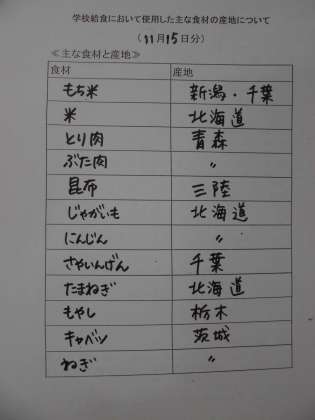 学校給食において使用した主な食材の産地について
(11月15日分)
≪主な食材と産地≫
食材 産地
もち米 新潟・千葉
米 北海道
とり肉 青森
ぶた肉 〃
昆布 三陸
じゃがいも 北海道
にんじん 〃
さやいんげん 千葉
たまねぎ 北海道
もやし 栃木
キャベツ 茨城
ねぎ 〃